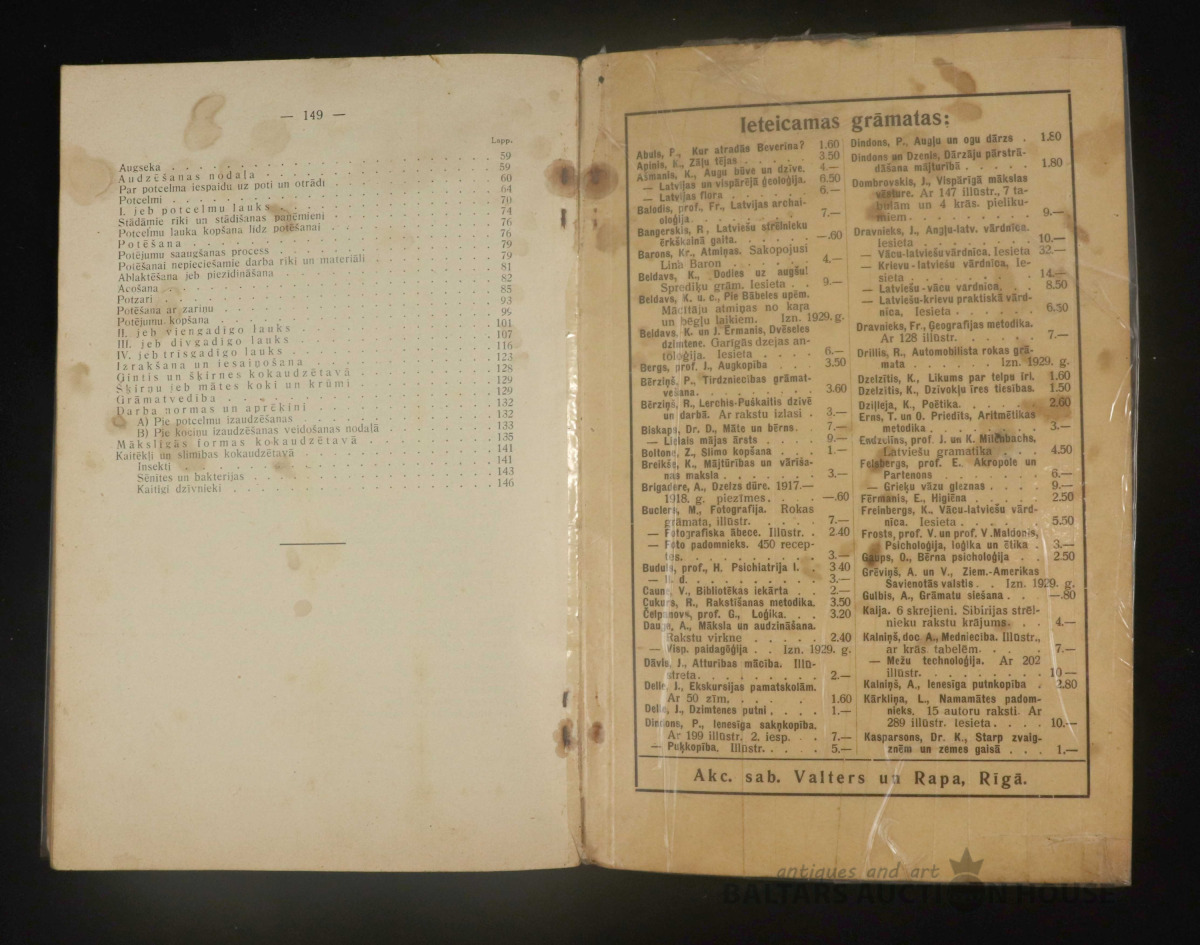 — 149 —
Lapp.
Augseka 59
Audzēšanas nodaļa 59
Par potcelma iespaidu uz poti un otrādi 60
Potcelmi 64
I. jeb potcelmu lauks 70
Stādāmie rīki un stādīšanas paņēmieni 74
Potcelmu lauka kopšana līdz potēšanai 76
Potēšana 76
Potējumu saaugšanas process 79
Potēšanai nepieciešamie darba rīki un materiāli 79
Ablaktēšana jeb piezīdināšana 81
Acošana 82
Potzari 85
Potēšana ar zariņu 93
Potējumu kopšana 99
II. jeb viengadīgo lauks 101
III. jeb divgadīgo lauks 107
IV. jeb trīsgadīgo lauks 116
Izrakšana un iesaiņošana 123
Ģintis un šķirnes kokaudzētavā 128
Šķirņu jeb mātes koki un krūmi 129
Grāmatvedība 129
Darba normas un aprēķini 132
A) Pie potcelmu izaudzēšanas 132
B) Pie kociņu izaudzēšanas veidošanas nodaļā 133
Mākslīgās formas kokaudzētavā 135
Kaitēkļi un slimības kokaudzētavā 141
Insekti 141
Sēnītes un bakterijas 143
Kaitīgi dzīvnieki 146
Ieteicamas grāmatas:
Abuls, P., Kur atradās Beverina? 1.60
Apinis, K., Zāļu tējas 3.50
Ašmanis, K., Augu būve un dzīve. 4.—
— Latvijas un vispārējā ģeoloģija. 6.50
— Latvijas flora 6.—
Balodis, prof., Fr., Latvijas archai-
oloģija 7.—
Bangerskis, R., Latviešu strēlnieku
ērkšķainā gaita —.60
Barons, Kr., Atmiņas. Sakopojusi
Lina Baron 4.—
Beldavs, K., Dodies uz augšu!
Sprediķu grām. Iesieta 9.—
Beldavs, K. u. c., Pie Bābeles upēm.
Mācītāju atmiņas no kara
un bēgļu laikiem. Izn. 1929. g.
Beldavs, K. un J. Ērmanis, Dvēseles
dzimtene. Garīgās dzejas an-
toloģija. Iesieta 6.—
Bergs, prof., J., Augkopība 3.50
Bērziņš, P., Tirdzniecības grāmat-
vešana 3.60
Bērziņš, R., Lerchis-Puškaitis dzīvē
un darbā. Ar rakstu izlasi 3.—
Biskaps, Dr. D., Māte un bērns. 7.—
— Lielais mājas ārsts 9.—
Boltone, Z., Slimo kopšana 1.—
Breikše, K., Mājtūrības un vārīša-
nas māksla 3.—
Brigadere, A., Dzelzs dūre. 1917.—
1918. g. piezīmes —.60
Buclers, M., Fotografija. Rokas
grāmata, illūstr. 7.—
— Fotografiska ābece. Illūstr. 2.40
— Foto padomnieks. 450 recep-
tes. 3.—
Buduls, prof., H. Psichiatrija I. 3.40
— II. d. 3.—
Caune, V., Bibliotēkas iekārta 2.—
Cukurs, R., Rakstīšanas metodika. 3.50
Čelpanovs, prof. G., Loģika. 3.20
Dauge, A., Māksla un audzināšana.
Rakstu virkne 2.40
— Visp. paidagōģija Izn. 1929. g.
Dāvis, J., Atturības mācība. Illū-
streta. 2.—
Delle, J., Ekskursijas pamatskolām.
Ar 50 zīm. 1.60
Delle, J., Dzimtenes putni 1.—
Dindons, P., Ienesīga sakņkopība.
Ar 199 illūstr. 2. iesp. 7.—
— Puķkopība. Illūstr. 5.—
Dindons, P., Augļu un ogu dārzs 1.80
Dindons un Dzenis, Dārzāju pārstrā-
dāšana mājturībā 1.80
Dombrovskis, J., Vispārīgā mākslas
vēsture. Ar 147 illūstr., 7 ta-
bulām un 4 krās. pieliku-
miem 9.—
Dravnieks, J., Angļu-latv. vārdnīca.
Iesieta 10.—
— Vācu-latviešu vārdnīca. Iesieta 32.—
— Krievu-latviešu vārdnīca, Ie-
sieta 14.—
— Latviešu-vācu vārdnīca. 8.50
— Latviešu-krievu praktiskā vārd-
nīca, Iesieta 6.50
Dravnieks, Fr., Ģeografijas metodika.
Ar 128 illūstr. 7.—
Drillis, R., Automobilista rokas grā-
mata Izn. 1929. g.
Dzelzītis, K., Likums par telpu īri. 1.60
Dzelzītis, K., Dzīvokļu īres tiesības. 1.50
Dziļleja, K., Poētika. 2.60
Erns, T. un O. Priedīts, Aritmētikas
metodika 3.—
Endzelīns, prof. J. un K. Mīlenbachs,
Latviešu gramatika 4.50
Felsbergs, prof. E. Akropole un
Partenons 6.—
— Grieķu vāzu gleznas 9.—
Fērmanis, E., Higiēna 2.50
Freinbergs, K., Vācu-latviešu vārd-
nīca. Iesieta 5.50
Frosts, prof. V. un prof. V. Maldonis,
Psicholoģija, loģika un ētika 3.—
Gaups, O., Bērna psicholoģija 2.50
Grēviņš, A. un V., Ziem.-Amerikas
Savienotās valstis Izn. 1929. g.
Gulbis, A., Grāmatu siešana —.80
Kaija. 6 skrējieni. Sibirijas strēl-
nieku rakstu krājums. 4.—
Kalniņš, doc. A., Medniecība. Illūstr.,
ar krās. tabelēm. 7.—
— Mežu technoloģija. Ar 202
illūstr. 10 —
Kalniņš, A., Ienesīga putnkopība 2.80
Kārkliņa, L., Namamātes padom-
nieks. 15 autoru raksti. Ar
289 illūstr. Iesieta 10.—
Kasparsons, Dr. K., Starp zvaig-
znēm un zemes gaisā 1.—
Akc. sab. Valters un Rapa, Rīgā.
antiques and art
BALTARS AUCTION HOUSE